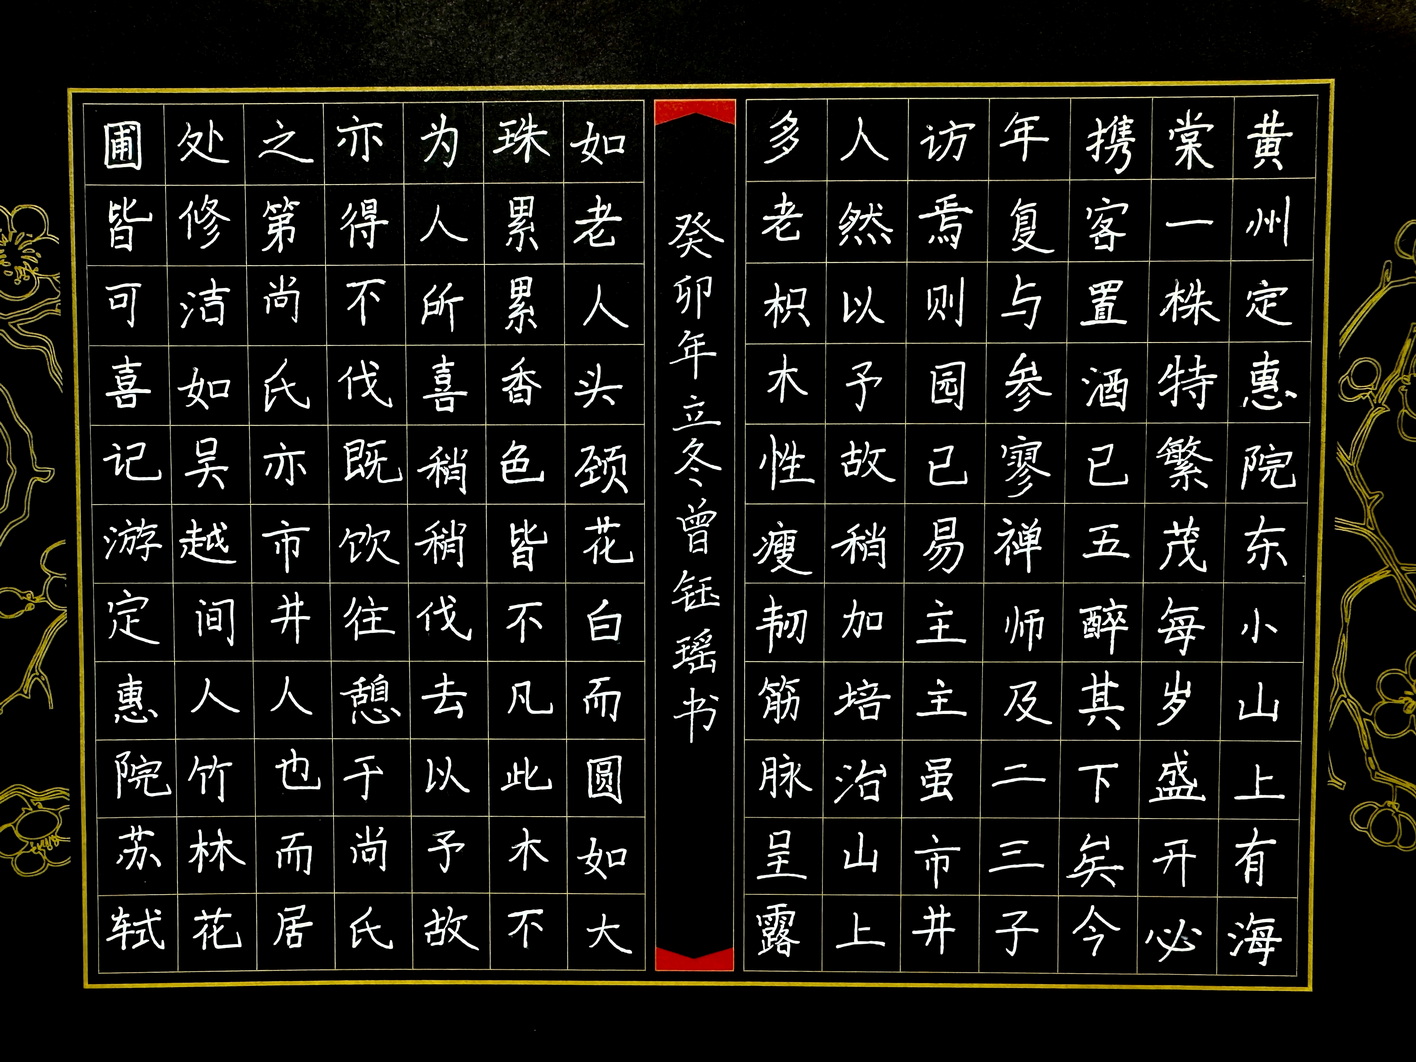 黄州定惠院东小山上有海
棠一株特繁茂每岁盛开必
携客置酒已五醉其下矣今
年复与参寥禅师及二三子
访焉则园已易主主虽市井
人然以予故稍加培治山上
多老枳木性瘦韧筋脉呈露
癸卯年立冬曾钰瑶书
如老人头颈花白而圆如大
珠累累香色皆不凡此木不
为人所喜稍稍伐去以予故
亦得不伐既饮往憩于尚氏
之第尚氏亦市井人也而居
处修洁如吴越间人竹林花
圃皆可喜记游定惠院苏轼